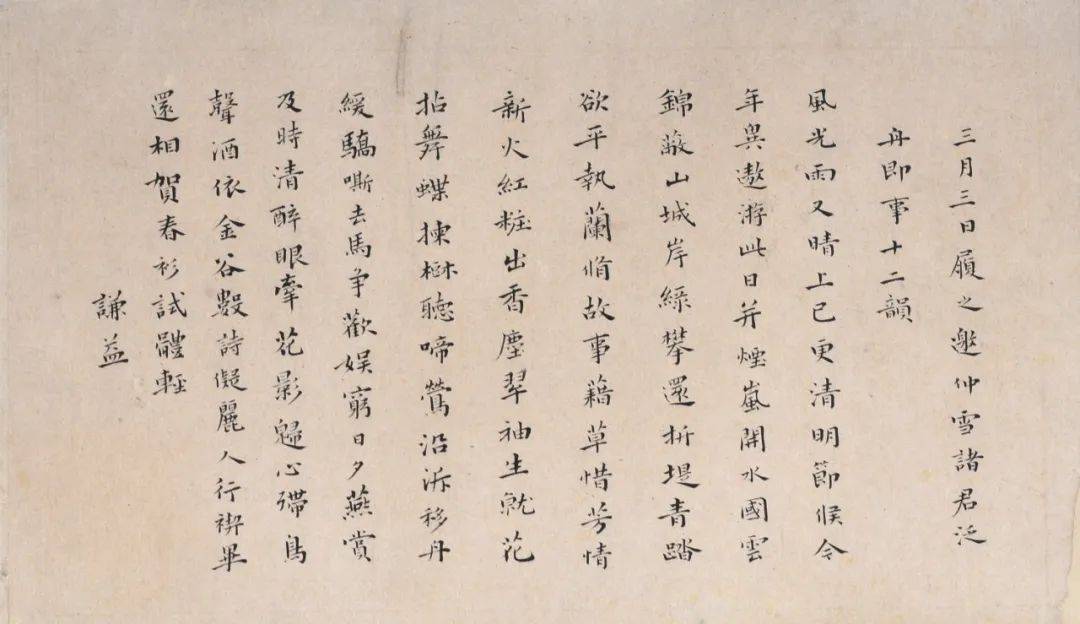 三月三日履之邀仲雪諸君泛
舟即事十二韻
風光雨又晴上巳更清明節候今
年異遨游此日并煙嵐開水國雲
錦蔽山城岸綠攀還折堤青踏
欲平執蘭脩故事藉草惜芳情
新火紅粧出香塵翠袖生就花
拈舞蝶揀樹聽啼鶯沿泝移舟
緩驕嘶去馬争歡娱窮日夕燕賞
及時清醉眼牽花影歸心殢鳥
聲酒依金谷數詩儗麗人行禊畢
還相賀春衫試體輕
謙益